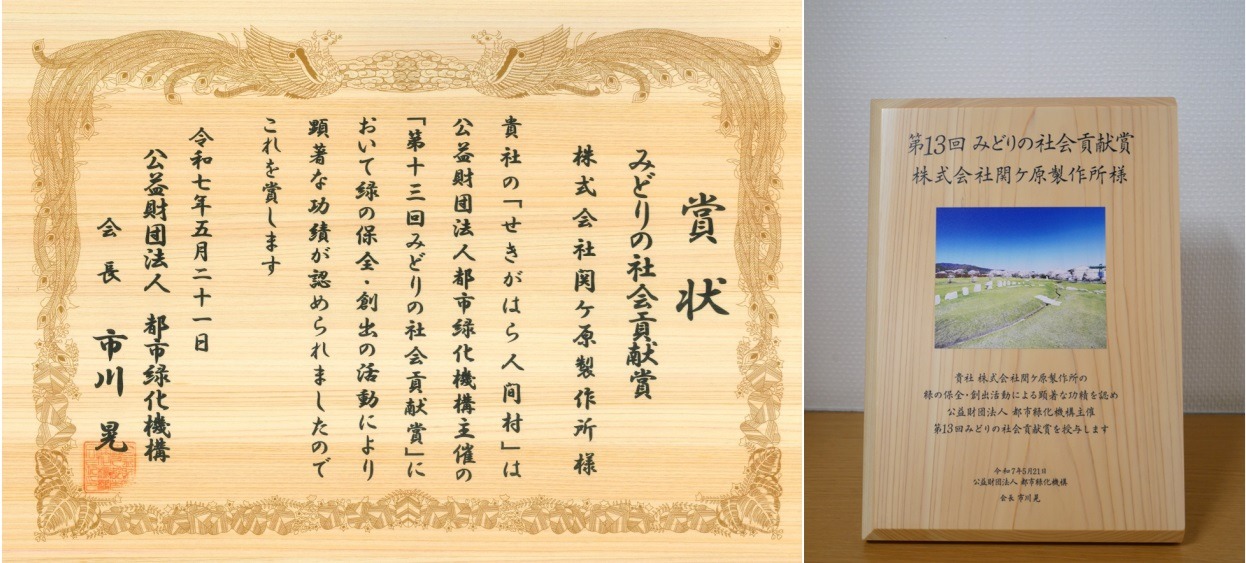 賞状
みどりの社会貢献賞
株式会社関ケ原製作所様
貴社の「せきがはら人間村」は
公益財団法人都市緑化機構主催の
「第十三回みどりの社会貢献賞」に
おいて緑の保全・創出の活動により
顕著な功績が認められましたので
これを賞します
令和七年五月二十一日
公益財団法人 都市緑化機構
会長 市川晃
第13回 みどりの社会貢献賞
株式会社関ケ原製作所様
貴社 株式会社関ケ原製作所の
緑の保全・創出活動による顕著な功績を認め
公益財団法人 都市緑化機構主催
第13回みどりの社会貢献賞を授与します
令和7年5月21日
公益財団法人 都市緑化機構
会長 市川晃